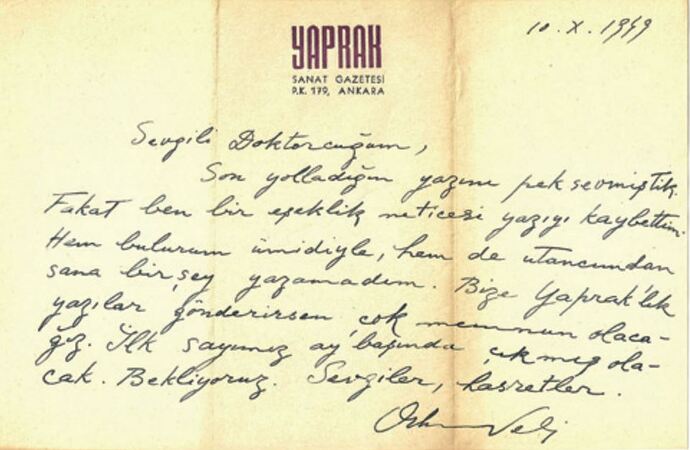 YAPRAK
SANAT GAZETESİ
P.K. 179, ANKARA
10.X.1949
Sevgili Doktorcuğum,
Son yolladığın yazını pek sevmiştik.
Fakat ben bir eşeklik neticesi yazıyı kaybettim.
Hem bulurum ümidiyle, hem de utancımdan
sana birşey yazamadım. Bize Yaprak'lık
yazılar gönderirsen çok memnun olaca-
ğız. İlk sayımız ay başında çıkmış ola-
cak. Bekliyoruz. Sevgiler, hasretler.
Orhan Veli